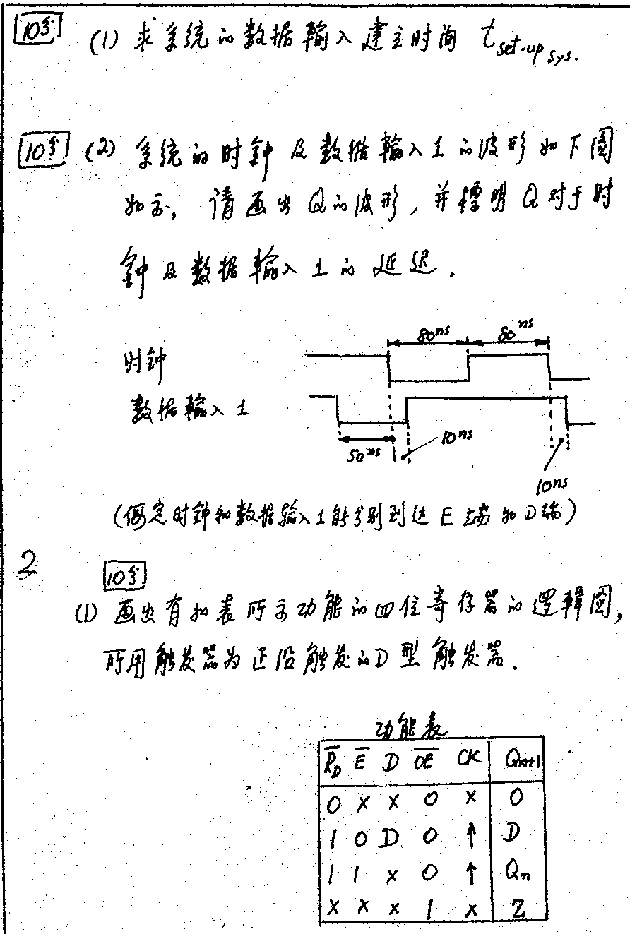 10分 (1) 求系统的数据输入建立时间 t set-up sys.
10分 (2) 系统的时钟及数据输入1的波形如下图
如示。请画出Q的波形,并标明Q对于时
钟及数据输入1的延迟.
80ns 80ns
时钟
数据输入1
50ns 10ns
10ns
(假定时钟和数据输入1能分别到达E端和D端)
2
10分
(1) 画出有如表所示功能的四位寄存器的逻辑图,
所用触发器为正沿触发的D型触发器.
功能表
R̅D E̅ D O̅E̅ CK Qn+1
0 × × 0 × 0
1 0 D 0 ↑ D
1 1 × 0 ↑ Qn
× × × 1 × Z